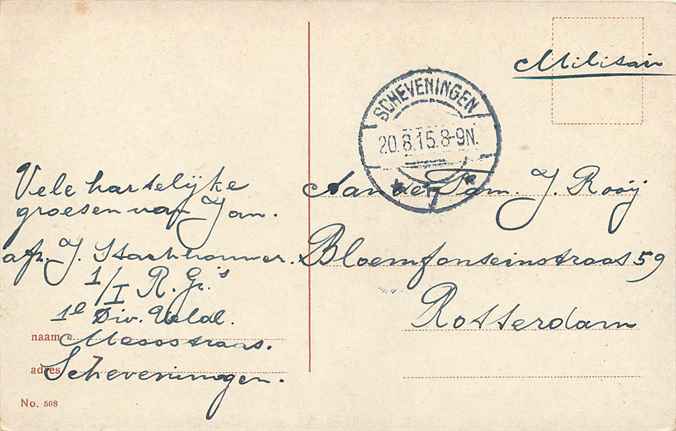 Militair
SCHEVENINGEN
20.8.15.8-9N.
7
Vele hartelijke
groesen van Jan.
afz. J.
1/I R. Gr.'s
1e Div. Veldl.
naam
Scheveningen.
adres
No. 508
Aan de Fam. J. Rooij
Bloemfonseinstraas 59
Rotterdam